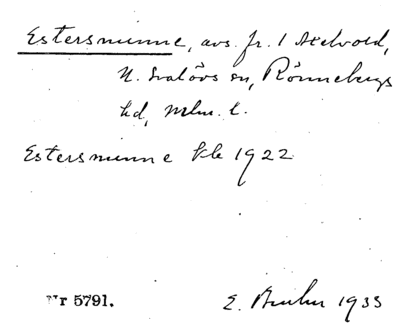 Estersminne, avs. fr. 1 Axelvold,
N. Svalövs sn, Rönnebergs
hd, Mlm. l.
Estersminne Kle 1922
Nr 5791.
E. 1933